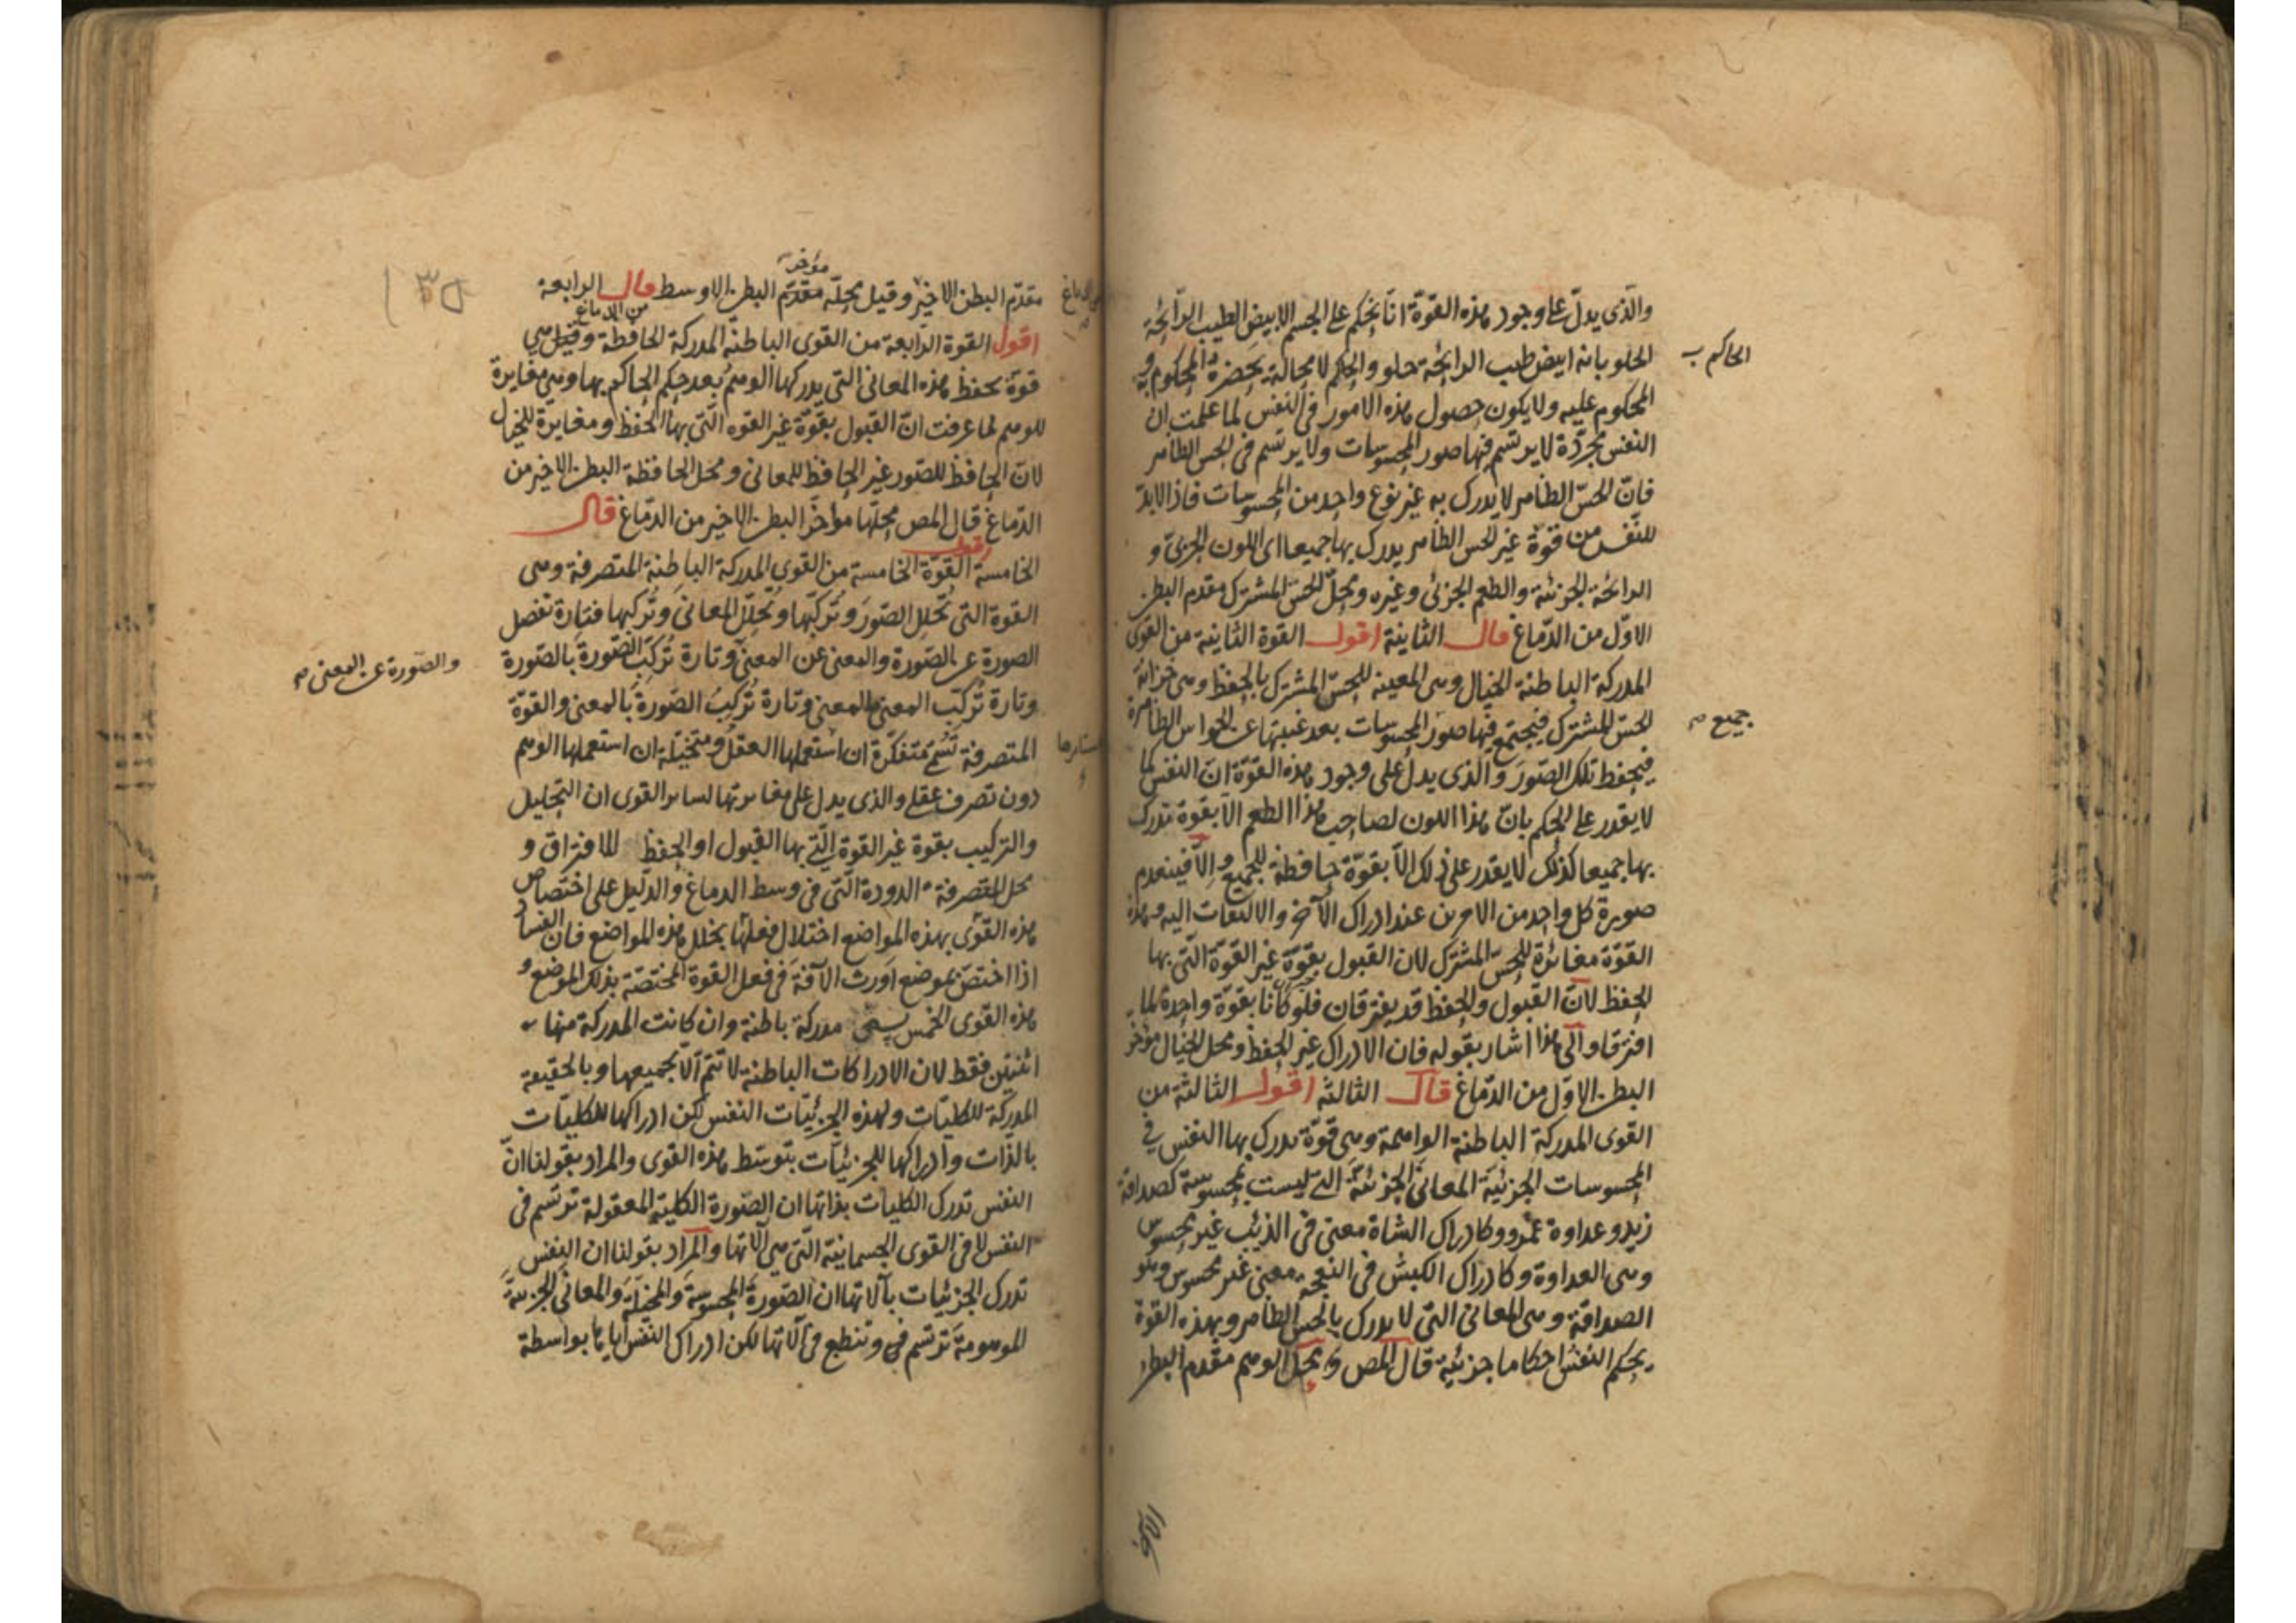 والذى يدل على وجود هذه القوة انا نحكم على الجسم الابيض الطيب الرائحة
الحلو بانه ابيض طيب الرائحة حلو والحكم لا محالة يحضره المحكوم به و
الحاكم ب
المحكوم عليه ولا يكون حصول هذه الامور فى النفس لما علمت ان
النفس مجردة لا يرتسم فيها صور المحسوسات ولا يرتسم فى الحس الظاهر
فان الحس الظاهر لا يدرك به غير نوع واحد من المحسوسات فاذا لابد
للنفس من قوة غير الحس الظاهر يدرك بها جميعا اى اللون الجزئى و
الرائحة الجزئية والطعم الجزئى وغيره ومحل الحس المشترك مقدم البطن
الاول من الدماغ قال الثانية اقول القوة الثانية من القوى
المدركة الباطنة الخيال وهى المعينة للحس المشترك بالحفظ وهى خزانة
الحس المشترك فيجتمع فيها صور المحسوسات بعد غيبتها عن الحواس الظاهرة
جميع
فيحفظ تلك الصور والذى يدل على وجود هذه القوة ان النفس كما
لا يقدر على الحكم بان هذا اللون لصاحب هذا الطعم الا بقوة تدرك
بها جميعا كذلك لا يقدر على ذلك الا بقوة حافظة للجميع والا فينعدم
صورة كل واحد من الامرين عند ادراك الآخر والالتفات اليه وهذه
القوة مغائرة للحس المشترك لان القبول بقوة غير القوة التى بها
الحفظ لان القبول والحفظ قد يفترقان فلو كانا بقوة واحدة لما
افترقا والى هذا اشار بقوله فان الادراك غير الحفظ ومحل الخيال مؤخر
البطن الاول من الدماغ قال الثالثة اقول الثالثة من
القوى المدركة الباطنة الواهمة وهى قوة تدرك بها النفس فى
المحسوسات الجزئية المعانى الجزئية التى ليست بمحسوسة كصداقة
زيد وعداوة عمرو وكادراك الشاة معنى فى الذئب غير محسوس
وهى العداوة وكادراك الكبش فى النعجة معنى غير محسوس وهو
الصداقة وهى المعانى التى لا يدرك بالحس الظاهر وبهذه القوة
يحكم النفس احكاما جزئية قال المص ومحل الوهم مقدم البطن
الاخير
مقدم البطن الاخير وقيل محله مقدم البطن الاوسط قال الرابعة
مؤخر
من الدماغ
اقول القوة الرابعة من القوى الباطنة المدركة الحافظة وقيل هى
قوة تحفظ هذه المعانى التى يدركها الوهم بعد حكم الحاكم بها وهى مغايرة
للوهم لما عرفت ان القبول بقوة غير القوه التى بها الحفظ ومغايرة للخيال
لان الحافظ للصور غير الحافظ للمعانى ومحل الحافظة البطن الاخير من
الدماغ قال المص محلها مؤخر البطن الاخير من الدماغ قال
الخامسة اقول القوة الخامسة من القوى المدركة الباطنة المتصرفة وهى
القوة التى تحلل الصور وتركبها وتحلل المعانى وتركبها فتارة تفصل
الصورة عن الصورة والمعنى عن المعنى وتارة تركب الصورة بالصورة
والصورة عن المعنى
وتارة تركب المعنى بالمعنى وتارة تركب الصورة بالمعنى والقوة
المتصرفة تسمى متفكرة ان استعملها العقل ومتخيلة ان استعملها الوهم
دون تصرف عقلى والذى يدل على مغايرتها لسائر القوى ان التحليل
والتركيب بقوة غير القوة التى بها القبول او الحفظ للافتراق و
محل المتصرفة الدودة التى فى وسط الدماغ والدليل على اختصاص
هذه القوى بهذه المواضع اختلال فعلها بخلل هذه المواضع فان الفساد
اذا اختص بموضع اورث الآفة فى فعل القوة المختصة بذلك الموضع و
هذه القوى الخمس يسمى مدركة باطنة وان كانت المدركة منها
اثنتين فقط لان الادراكات الباطنة لا تتم الا بجميعها وبالحقيقة
المدركة للكليات ولهذه الجزئيات النفس لكن ادراكها للكليات
بالذات وادراكها للجزئيات بتوسط هذه القوى والمراد بقولنا ان
النفس تدرك الكليات بذاتها ان الصورة الكلية المعقولة ترتسم فى
النفس لا فى القوى الجسمانية التى هى آلاتها والمراد بقولنا ان النفس
تدرك الجزئيات بآلاتها ان الصورة المحسوسة والمخيلة والمعانى الجزئية
الموهومة ترتسم فى وتنطبع فى آلاتها لكن ادراك النفس اياها بواسطة